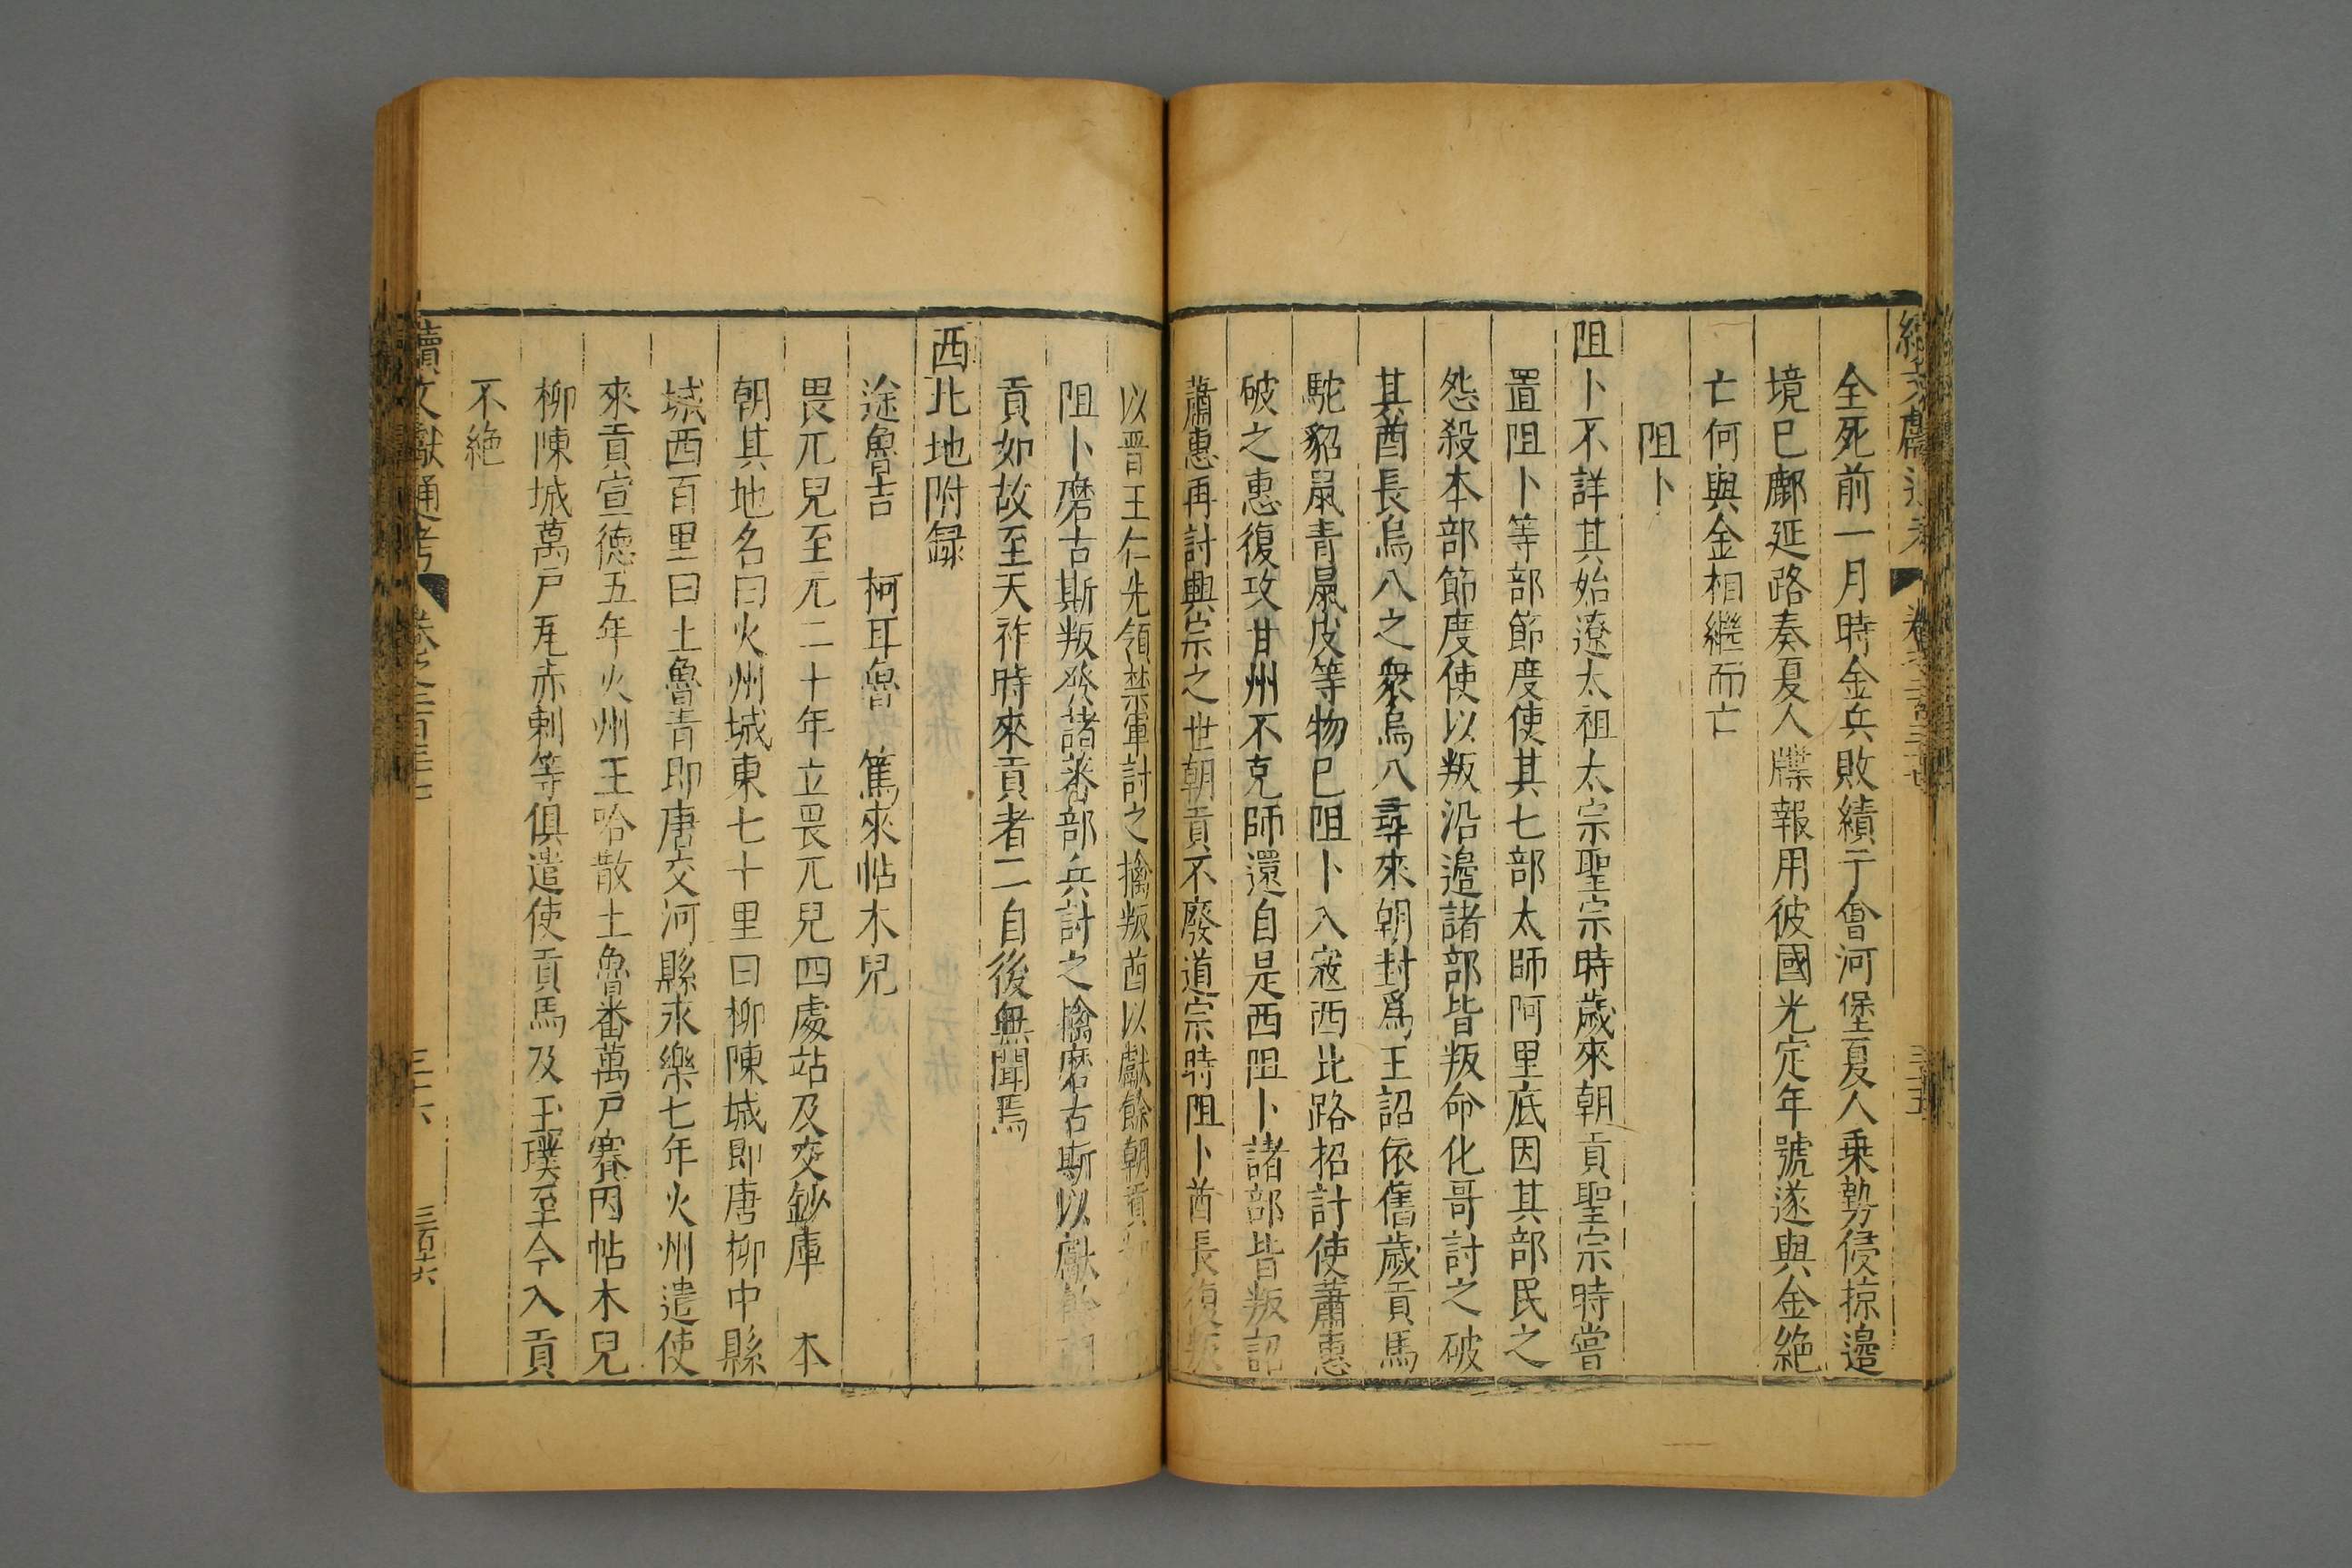 全死前一月時金兵敗績于會河堡夏人乗勢侵掠邉
境巳鄜延路奏夏人牒報用彼國光定年號遂與金絶
亡何與金相繼而亡
阻卜
阻卜不詳其始遼太祖太宗聖宗時歲來朝貢聖宗時嘗
置阻卜等部節度使其七部太師阿里底因其部民之
怨殺本部節度使以叛沿邉諸部皆叛命化哥討之破
其酋長烏八之衆烏八尋來朝封爲王詔依舊歲貢馬
駝貂鼠青鼠皮等物巳阻卜入寇西北路招討使蕭惠
破之惠復攻甘州不克師還自是西阻卜諸部皆叛詔
蕭惠再討興宗之世朝貢不廢道宗時阻卜酋長復叛
以晋王仁先領禁軍討之擒叛酋以獻餘朝貢
阻卜磨古斯叛發諸蕃部兵討之擒磨古斯以獻餘朝
貢如故至天祚時來貢者二自後無聞焉
西北地附録
途魯吉 柯耳魯 篤來帖木兒
畏兀兒至元二十年立畏兀兒四處站及交鈔庫 本
朝其地名曰火州城東七十里曰柳陳城即唐柳中縣
城西百里曰土魯青即唐交河縣永樂七年火州遣使
來貢宣徳五年火州王哈散土魯番萬戸賽因帖木兒
柳陳城萬戸瓦赤剌等俱遣使貢馬及玉璞至今入貢
不絶
續文獻通考 卷之二百三十七 三十六 三百十六